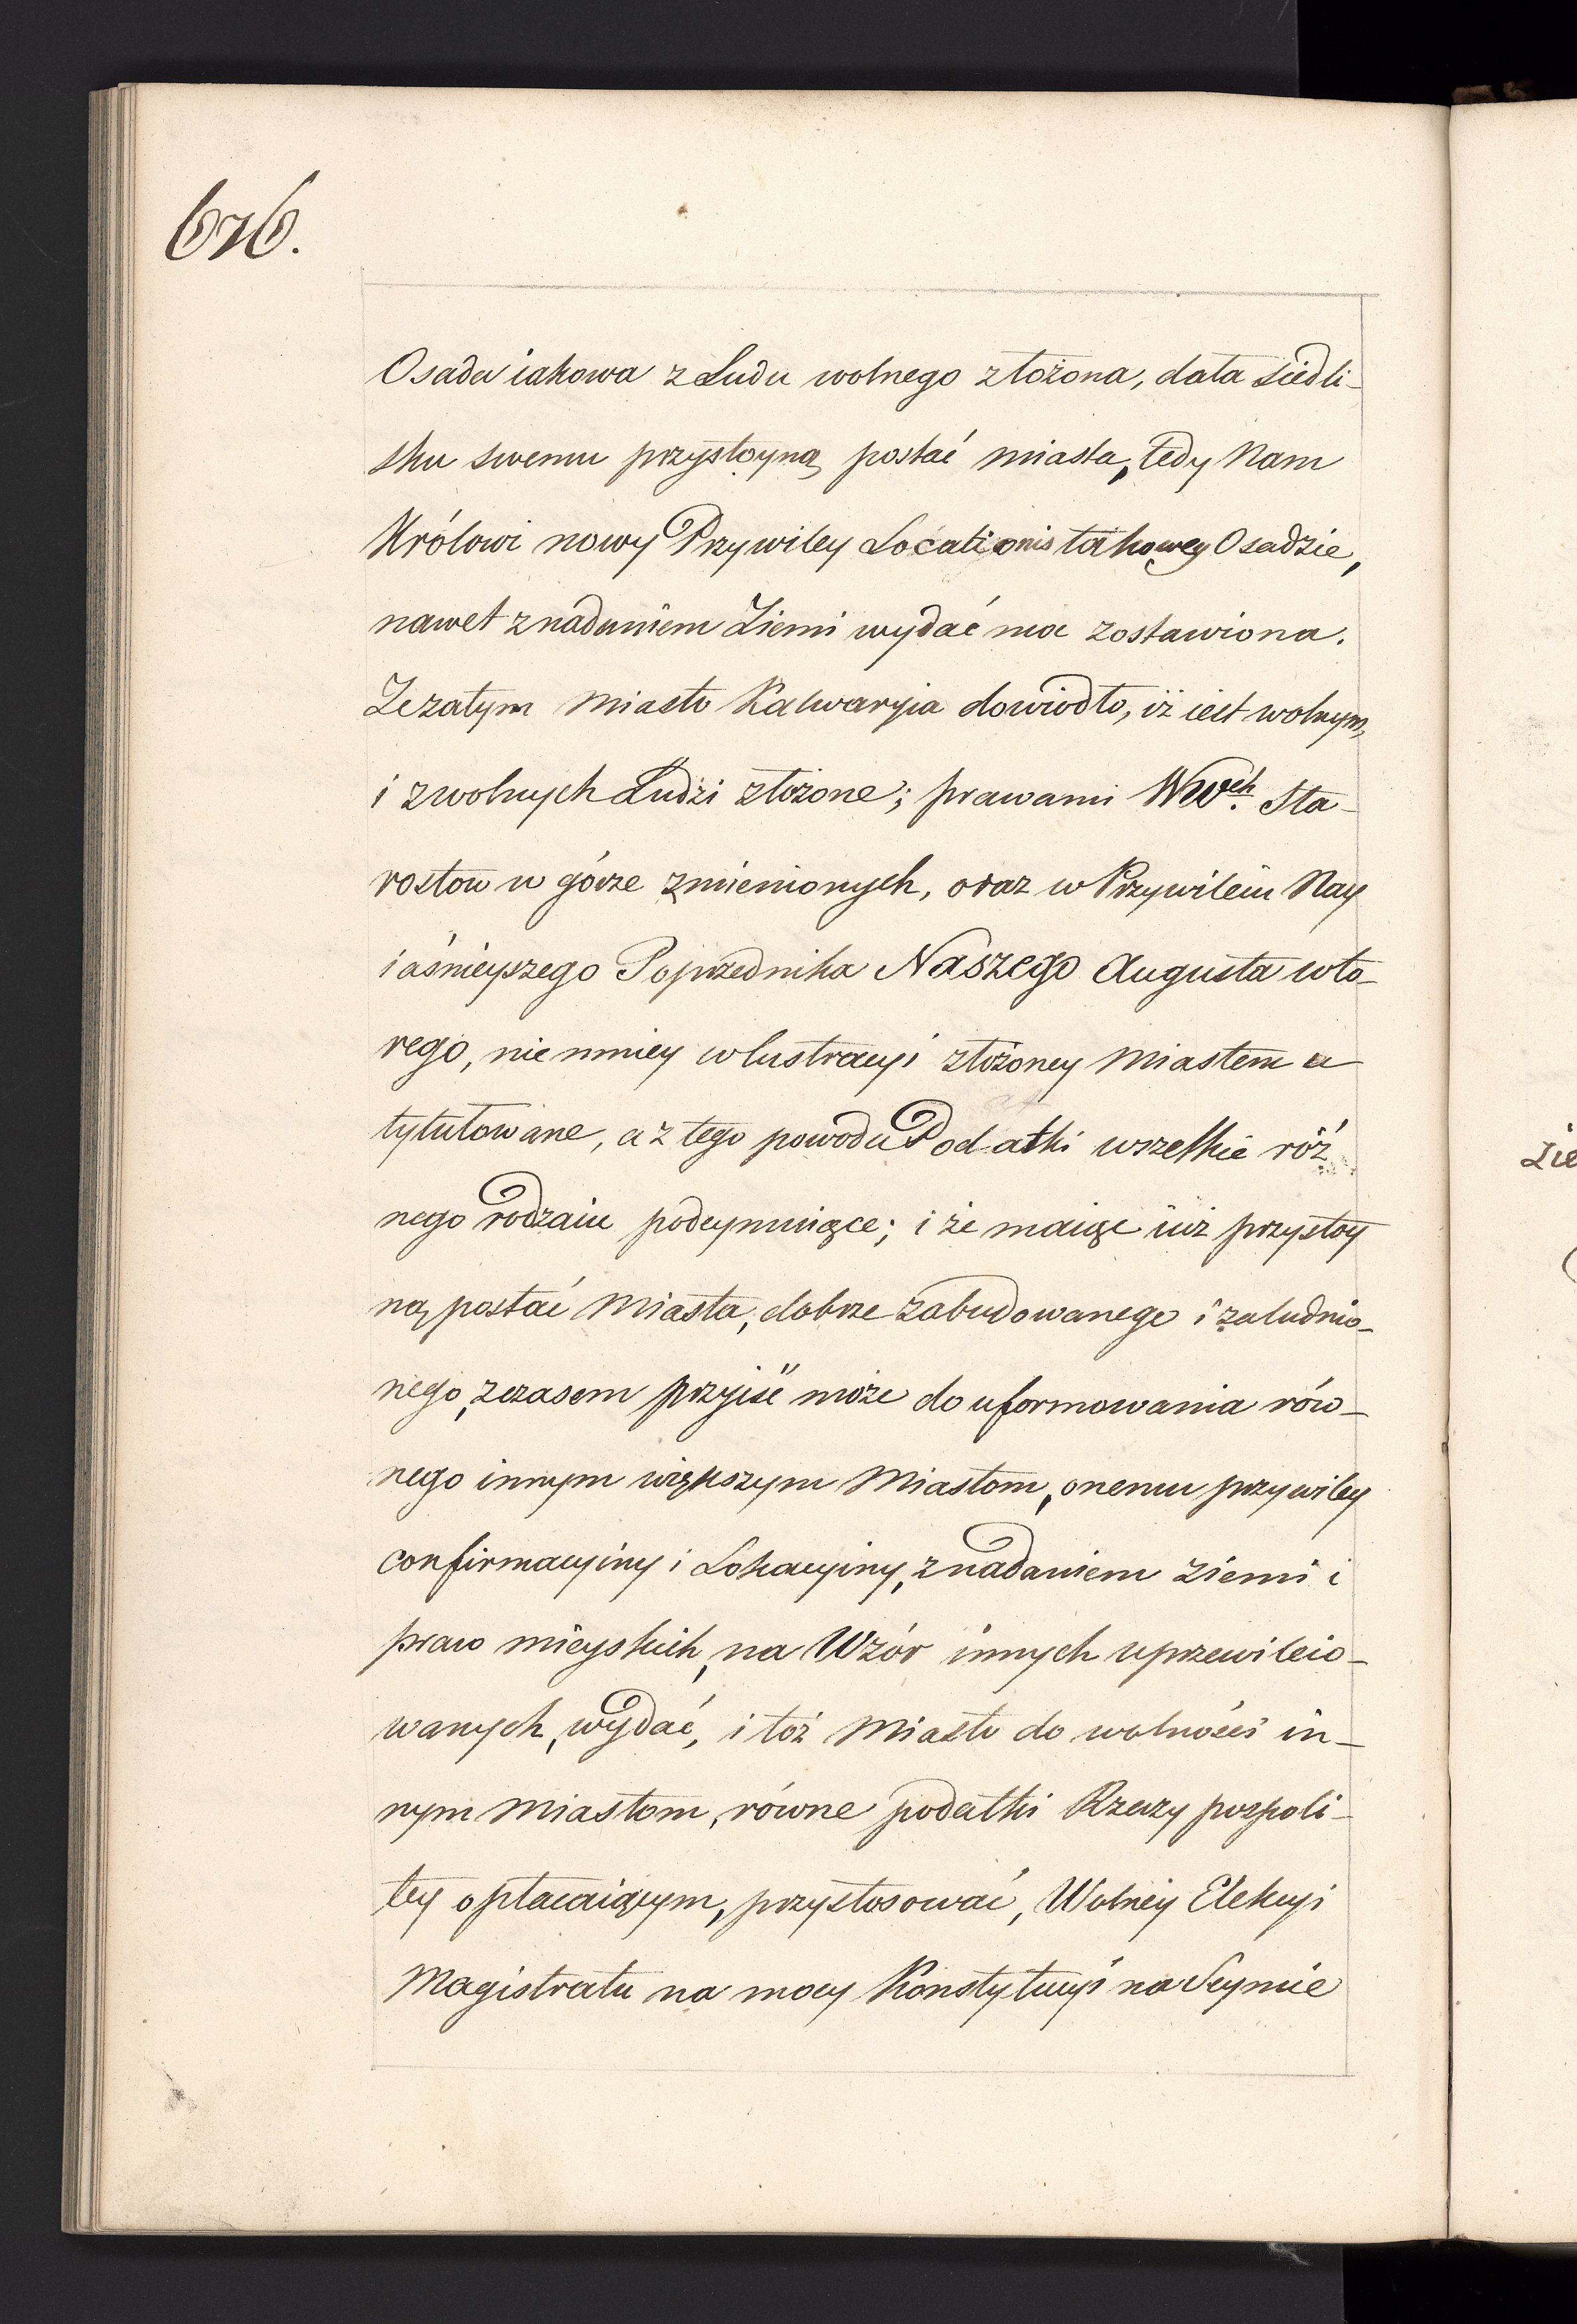 676.
Osada iakowa z Ludu wolnego złożona, dała siedli-
sku swemu przystoyną postać miasta, tedy Nam
Królowi nowy Przywiley Locationis takowey Osadzie,
nawet z nadaniem Ziemi wydać moc zostawiona.
Ze zatym Miasto Kalwaryia dowiodło, iż iest wolnym,
i z wolnych Ludzi złożone; prawami WWch. Sta-
rostow w górze zmienionych, oraz w Przywileiu Nay
iaśnieyszego Poprzednika Naszego Augusta wto-
rego, nie mniey w lustracyi złożoney Miastem u
tytułowane, a z tego powodu Podatki wszelkie róż
nego rodzaiu podeymuiące; i że maiąc iuż przystoy
ną postać Miasta, dobrze zabudowanego i zaludnio-
nego, z czasem przyiść może do uformowania rów-
nego innym większym Miastom, onemu przywiley
confirmacyiny i Lokacyiny, z nadaniem ziemi i
praw mieyskich, na Wzór innych uprzewileio-
wanych, wydać, i toż Miasto do wolności in-
nym Miastom, równe podatki Rzeczy pospoli-
tey opłacaiącym, przystosować, Wolney Elekcyi
Magistratu na mocy Konstytucyi na Seymie
Zie